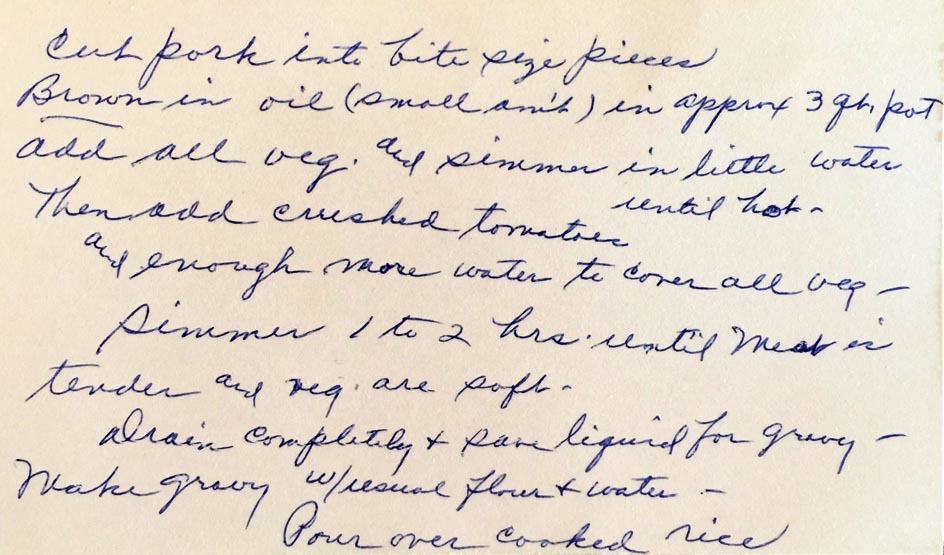 Cut pork into bite size pieces
Brown in oil (small am't) in approx 3 qt. pot
add all veg. and simmer in little water
until hot -
Then add crushed tomatoes
and enough more water to cover all veg -
Simmer 1 to 2 hrs. until Meat is
tender and veg. are soft -
Drain completely + save liquid for gravy -
Make gravy w/usual flour + water -
Pour over cooked rice